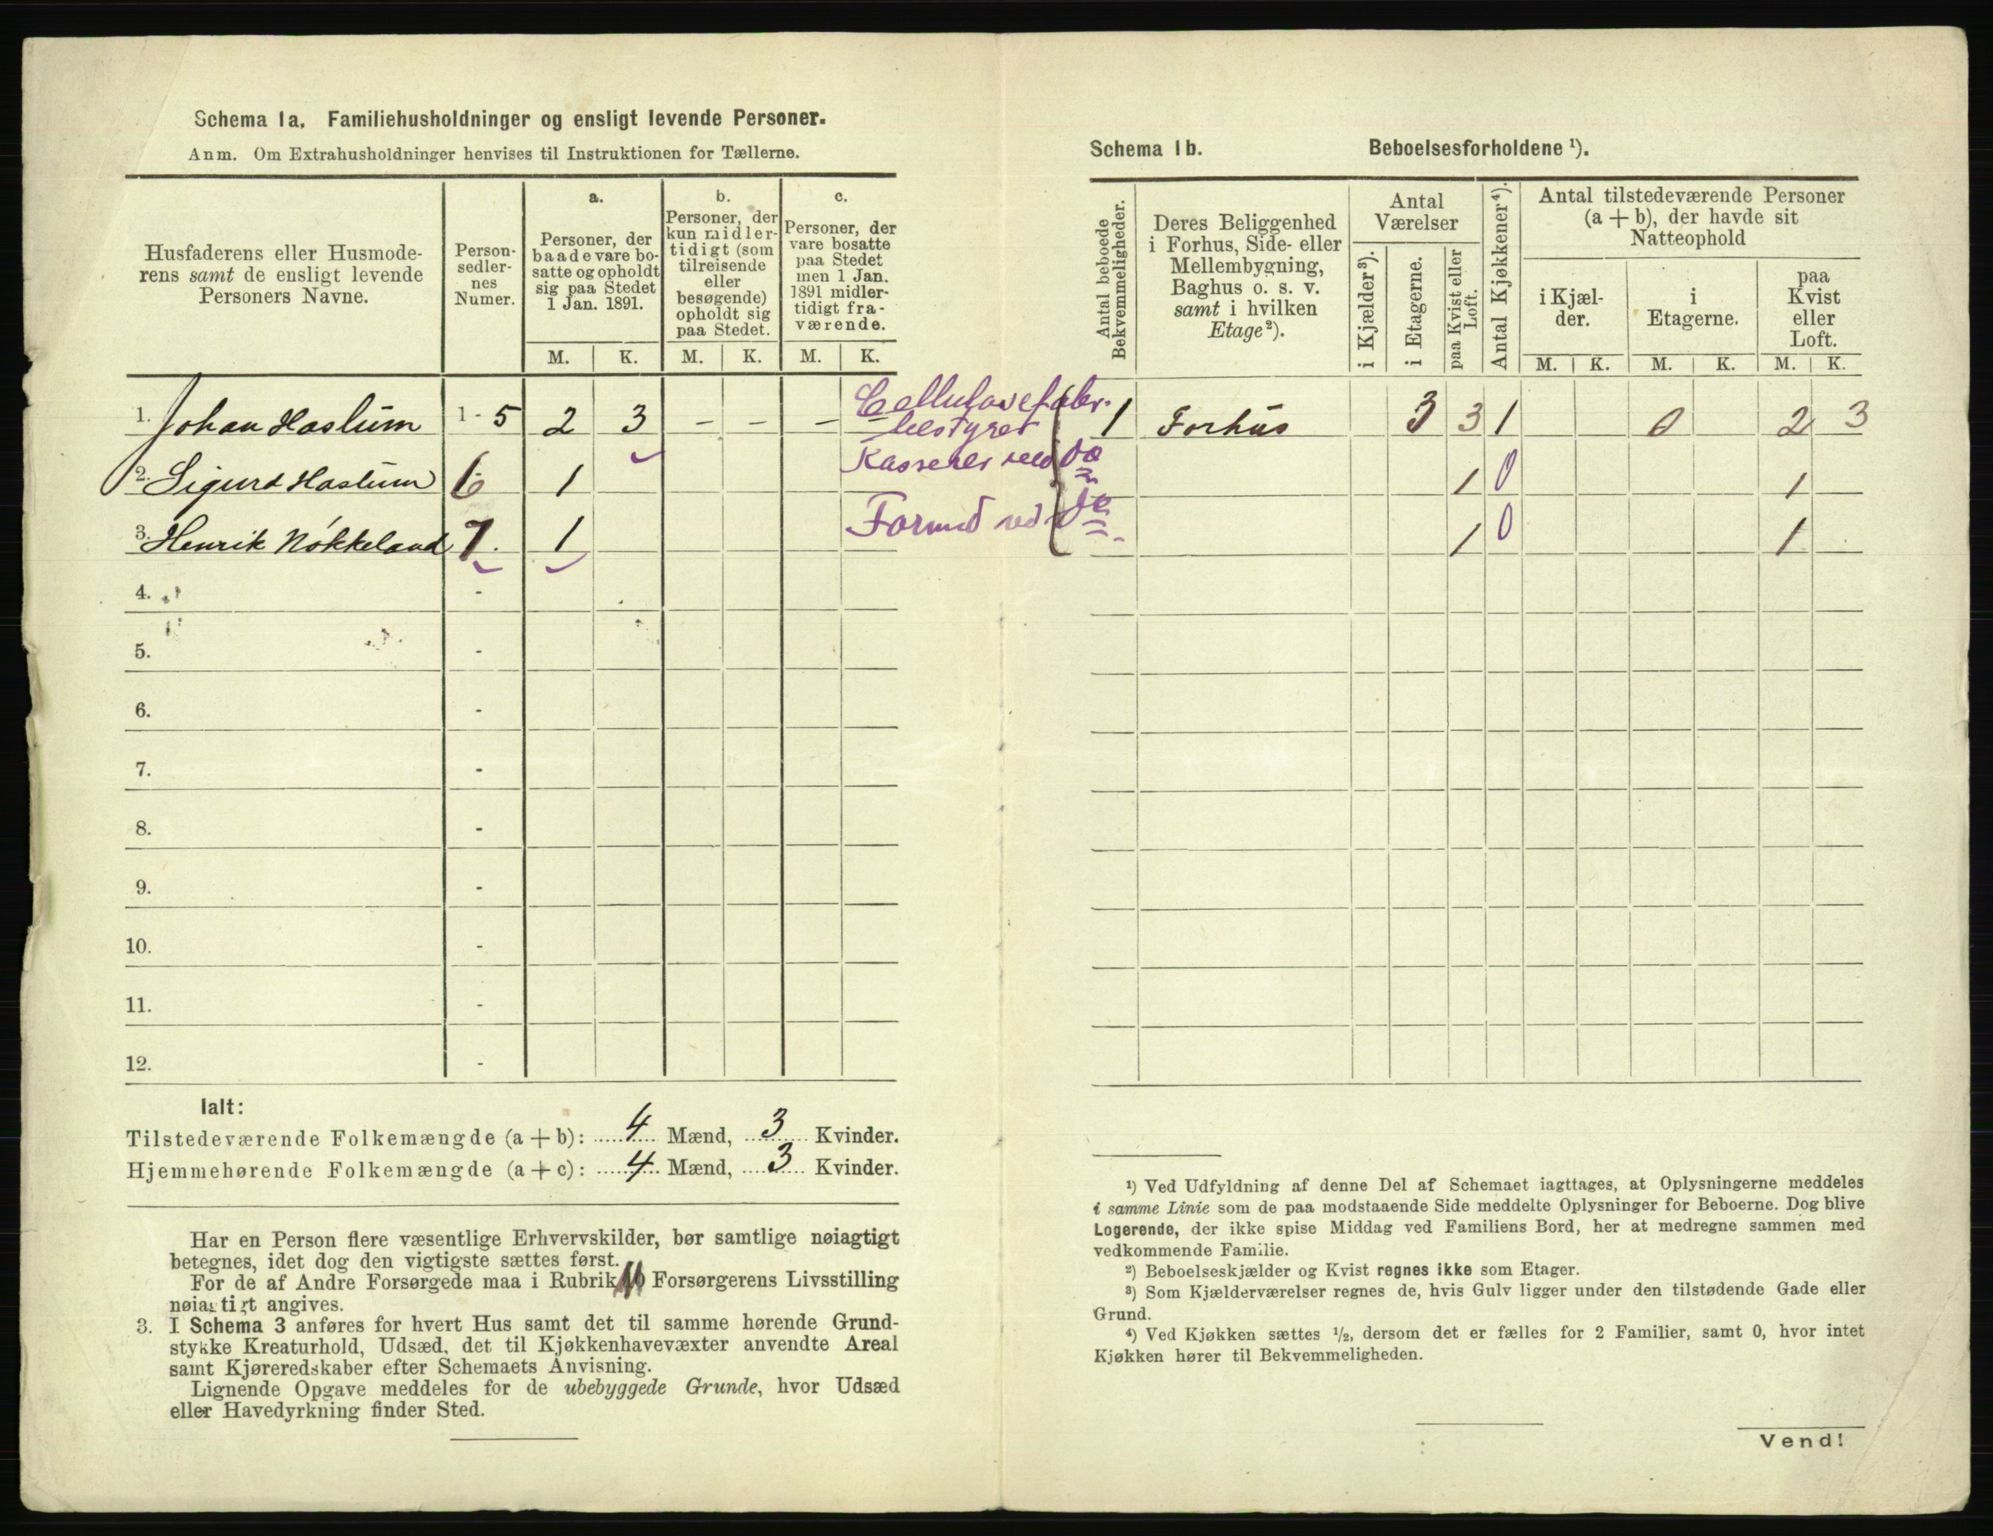 Schema 1a. Familiehusholdninger og ensligt levende Personer.
Anm. Om Extrahusholdninger henvises til Instruktionen for Tællerne.
Husfaderens eller Husmode-
rens samt de ensligt levende
Personers Navne.
Person-
sedler-
nes
Numer.
a.
Personer, der
baade vare bo-
satte og opholdt
sig paa Stedet
1 Jan. 1891.
b.
Personer, der
kun midler-
tidigt (som
tilreisende
eller
besøgende)
opholdt sig
paa Stedet.
c.
Personer, der
vare bosatte
paa Stedet
men 1 Jan.
1891 midler-
tidigt fra-
værende.
M. K. M. K. M. K.
1. Johan Haslum 1 - 5 2 3 - - - Cellulosefabr.
bestyrer
2. Sigurd Haslum 6 1 Kasserer ved do
3. Henrik Nökkeland 7. 1 Formd ved do
4. -
5. -
6. -
7. -
8. -
9. -
10. -
11. -
12. -
Ialt:
Tilstedeværende Folkemængde (a + b): 4 Mænd, 3 Kvinder.
Hjemmehørende Folkemængde (a + c): 4 Mænd, 3 Kvinder.
Har en Person flere væsentlige Erhvervskilder, bør samtlige nøiagtigt
betegnes, idet dog den vigtigste sættes først.
For de af Andre Forsørgede maa i Rubrik Forsørgerens Livsstilling
nøiagtigt angives.
3. I Schema 3 anføres for hvert Hus samt det til samme hørende Grund-
stykke Kreaturhold, Udsæd, det til Kjøkkenhavevæxter anvendte Areal
samt Kjøreredskaber efter Schemaets Anvisning.
Lignende Opgave meddeles for de ubebyggede Grunde, hvor Udsæd
eller Havedyrkning finder Sted.
Schema 1b. Beboelsesforholdene ¹).
Antal beboede
Bekvemmeligheder.
Deres Beliggenhed
i Forhus, Side- eller
Mellembygning,
Baghus o. s. v.
samt i hvilken
Etage ²).
Antal
Værelser
i Kjælder ³).
i Etagerne.
paa Kvist eller
Loft.
Antal Kjøkkener ⁴).
Antal tilstedeværende Personer
(a + b), der havde sit
Natteophold
i Kjæl-
der.
i
Etagerne.
paa
Kvist
eller
Loft.
M. K. M. K. M. K.
1 Forhus 3 3 1 0 2 3
1 0 1
1 0 1
¹) Ved Udfyldning af denne Del af Schemaet iagttages, at Oplysningerne meddeles
i samme Linie som de paa modstaaende Side meddelte Oplysninger for Beboerne. Dog blive
Logerende, der ikke spise Middag ved Familiens Bord, her at medregne sammen med
vedkommende Familie.
²) Beboelseskjælder og Kvist regnes ikke som Etager.
³) Som Kjælderværelser regnes de, hvis Gulv ligger under den tilstødende Gade eller
Grund.
⁴) Ved Kjøkken sættes ¹/₂, dersom det er fælles for 2 Familier, samt 0, hvor intet
Kjøkken hører til Bekvemmeligheden.
Vend!